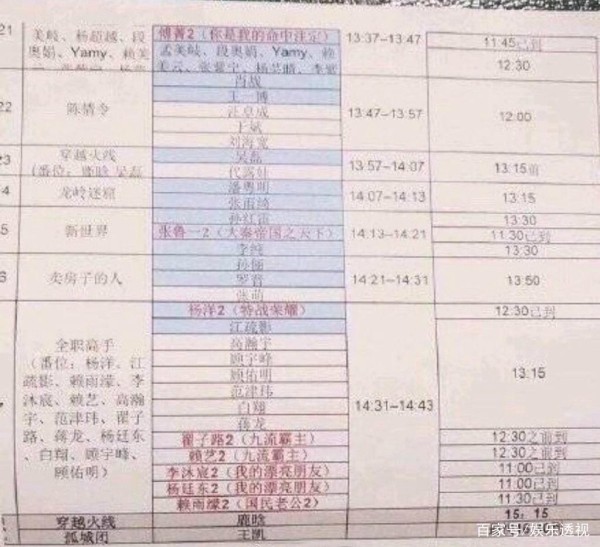 21
美岐、杨超越、段
奥娟、Yamy、赖美
傅菁2（你是我的命中注定）
孟美岐、段奥娟、Yamy、赖
美云、张紫宁、杨芸晴、李紫
13:37-13:47
11:45已到
12:30
22
陈情令
肖战
王一博
汪卓成
于斌
刘海宽
13:47-13:57
12:00
23
穿越火线
（番位：鹿晗 吴磊
吴磊
代露娃
13:57-14:07
13:15前
4
龙岭迷窟
潘粤明
张雨绮
14:07-14:13
13:15
5
新世界
孙红雷
张鲁一2（大秦帝国之天下）
李纯
14:13-14:21
13:30
11:30已到
13:30
6
卖房子的人
孙俪
罗晋
张萌
14:21-14:31
13:50
全职高手
（番位：杨洋、江
疏影、赖雨濛、李
沐宸、赖艺、高瀚
宇、范津玮、翟子
路、蒋龙、杨廷东
、白翔、顾宇峰、
顾佑明）
杨洋2（特战荣耀）
江疏影
高瀚宇
顾宇峰
顾佑明
范津玮
白翔
蒋龙
翟子路2（九流霸主）
赖艺2（九流霸主）
李沐宸2（我的漂亮朋友）
杨廷东2（我的漂亮朋友）
赖雨濛2（国民老公2）
14:31-14:43
12:30已到
13:15
12:30之前到
12:30之前到
11:00已到
11:00已到
11:30已到
穿越火线
鹿晗
15：15
孤城闭
王凯
百家号/娱乐透视